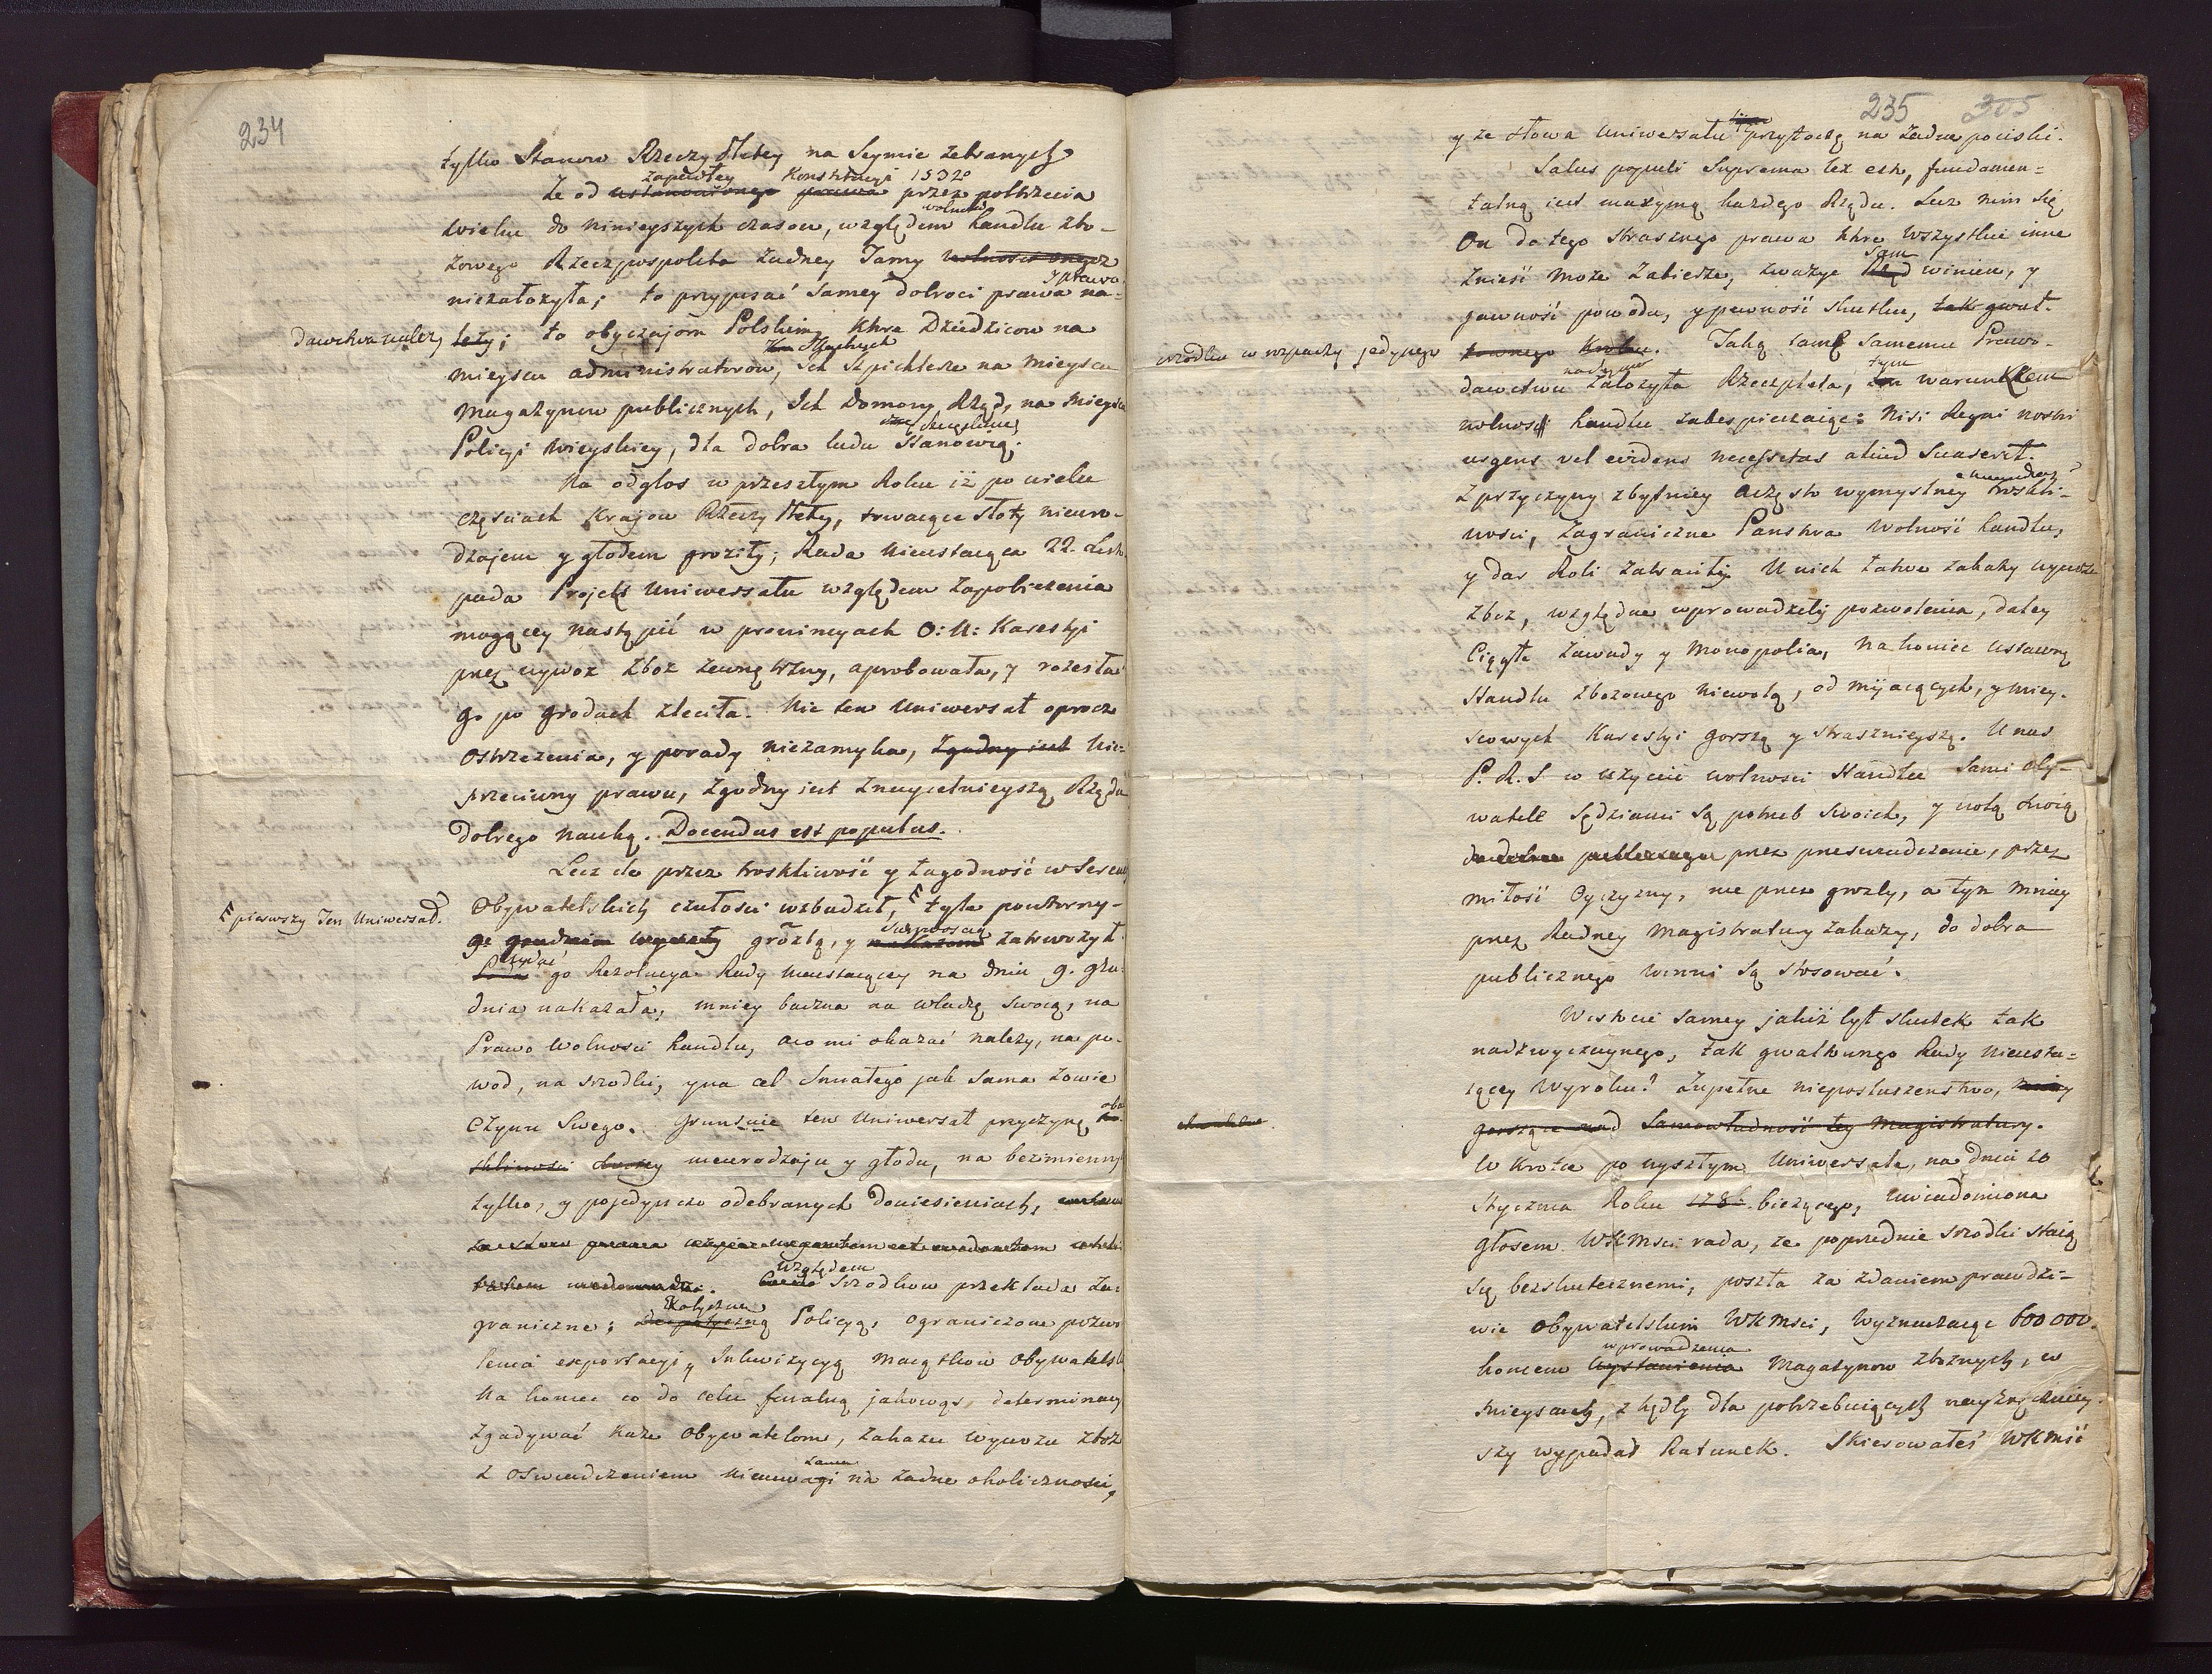 234
tylko Stanow Rzeczyptey na Seymie zebranych
zapadłey Konstitucyi 1532º
że od ustanowionego prawa przez połtrzecia
wolnego
wieku do ninieyszych czasow, względem handlu zbo-
żowego Rzeczpospolita żadney Tamy wolnosci onego
y prawo
niezałożyła; to przypisać samey dobroci prawa na-
dawctwa należy
leży; to obyczajom Polskim, które Dziedzicow na
Szlachtych
mieyscu administratorow, Ich Szpichlerze na mieyscu
Magazynow publicznych, Ich Domowy Rząd, na mieyscu
Policyi Wieyskiey, dla dobra ludu Stanowią.
Na odgłos w przeszłym Roku iż po wielu
częsciach Krajow Rzeczyptey, trwaiące słoty nieuro-
dzajem y głodem groziły; Rada Nieustaiąca 22. Listo
pada Projekt Uniwersału względem zapobieżenia
mogącey nastąpić w prowincyach O: N: Karestyi
przez wywoz zboż zewnętrzny, aprobowała, y rozesłać
go po grodach zleciła. Nic ten Uniwersał oprocz
ostrzeżenia, y porady niezamyka, zgodny iest Nie-
przeciwny prawu, zgodny iest z nayistnieyszą Rządu
dobrego nauką. Docendus est populus.
Lecz ile przez troskliwość y łagodność w sercach
pierwszy Ten Uniwersał
Obywatelskich czułości wzbudził, tyle powtorny-
Surowością
go grudnia wydały groźbą, y nakazami zatrwożył.
Wydać
go Rezolucya Rady Nieustaiącey na dniu 9. gru-
dnia nakazała, mniey baczna na władzę swoią, na
Prawo Wolnosci handlu, a co mi okazać należy, na po-
wod, na srzodki, y na cel Smiałego jak sama zowie
czynu Swego. Gruntuie ten Uniwersał przyczynę
nieurodzaju y głodu, na bezimiennych
tylko, y pojedynczo odebranych doniesieniach,
Względem
Srzodkow przekłada Za-
graniczne; despotyczną Policyą, ograniczone pozwo
lenia exportacyi, Inkwizycyą Maiątkow Obywatelskich
Na koniec co do celu finalną jakowąś, determinacyą
Zgadywać każe Obywatelom, zakazu wywozu zboż
z oswiadczeniem nieuwagi na żadne okoliczności,
235 305
y że słowa Uniwersału przytoczę na żadne pociski.
Salus populi Suprema lex est, fundamen-
talną iest maxymą każdego Rządu. Lecz nim się
On do tego strasznego prawa które wszystkie inne
Sam
znieść może zabierze, zważyć Rząd winien, y
jawność powodu, y pewność skutku, tak gwał-
srzodku w rozpaczy jedynego
townego Kroku. Taką tamę samemu Prawo-
tym
dawctwu założyła Rzeczplta, ten warunkiem
wolność handlu zabespieczaiąc: Nisi Regni nostri
urgens vel evidens necessitas aliud Suaserit.
Z przyczyny zbytniey a często wymyslney troskli-
wosci, zagraniczne Panstwa Wolność handlu,
y dar Roli zatraciły. U nich łatwe zakazy wywozu
zboż, względne wprowadziły pozwolenia, daley
Ciągłe zawady y Monopolia, na koniec ustawną
Handlu zbożowego niewolą, od mijaiących, y miey-
scowych Karestyi gorszą y strasznieyszą. U nas
P. R. S w użyciu wolnosci Handlu Sami Oby-
watele Sędziami są potrzeb swoich, y wolą swoią
przez przeswiadczenie, przez
miłość Oyczyzny, nie przez grozby, a tym mniey
przez Radney Magistratury zakazy, do dobra
publicznego winni są stosować.
W istocie samey jakiż był skutek tak
nadzwyczaynego, tak gwałtownego Rady Nieusta-
iącey Wyroku? Zupełne nieposłuszenstwo,
gorszące nad Samowładność tey Magistratury.
W krotce po wyszłym Uniwersale, na dniu 20
Stycznia Roku 178 bieżącego, uwiadomiona
głosem WKMsci rada, że poprzednie srzodki staią
się bezskutecznemi, poszła za zdaniem prawdzi-
wie Obywatelskim WKMsci, wyznaczaiąc 600 000.
wprowadzenia
koncem wystawienia Magazynow zbożnych, w
mieyscach, z kądby dla potrzebuiących nayzręcznie-
szy wypadał Ratunek. Skierowałeś WKMść